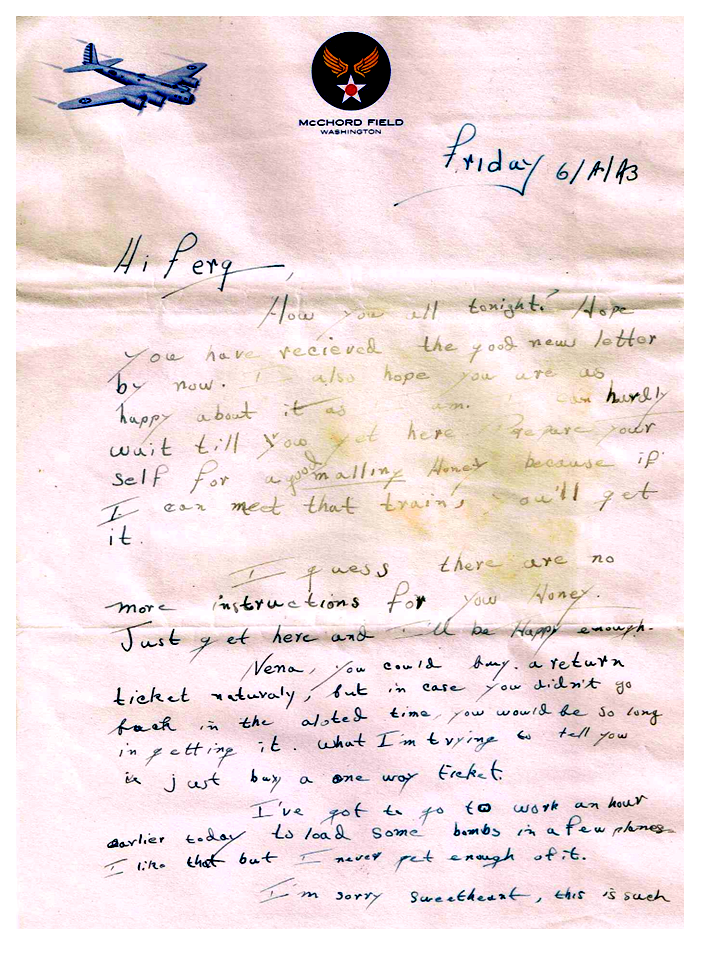 McCHORD FIELD
WASHINGTON
Friday 6/4/43
Hi Perq,
How you all tonight? Hope
you have recieved the good news letter
by now. I also hope you are as
happy about it as I am. I can hardly
wait till you get here. Prepare your
self for a good malling Honey because if
I can meet that train, you'll get
it.
I guess there are no
more instructions for you Honey.
Just get here and I'll be Happy enough.
Nena, you could buy a return
ticket naturaly, but in case you didn't go
back in the aloted time, you would be so long
in getting it. What I'm trying to tell you
is just buy a one way ticket.
I've got to go to work an hour
earlier today to load some bombs in a few planes
I like that but I never get enough of it.
I'm sorry sweetheart, this is such